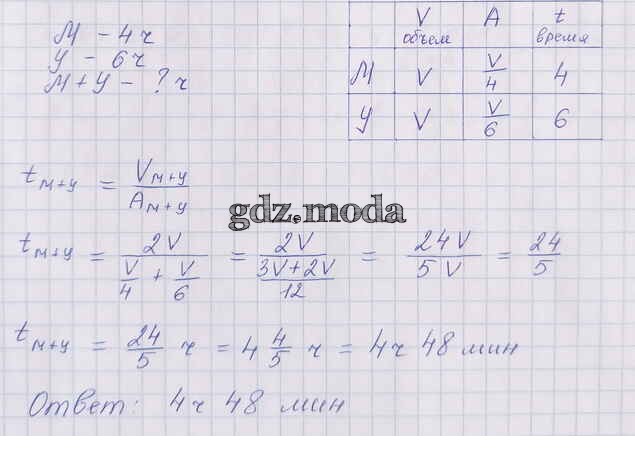 М - 4 ч
У - 6 ч
М + У - ? ч
V объем A t время
М V V/4 4
У V V/6 6
t м+у = V м+у / A м+у
gdz.moda
t м+у = 2V / (V/4 + V/6) = 2V / ((3V + 2V)/12) = 24V / 5V = 24/5
t м+у = 24/5 ч = 4 4/5 ч = 4ч 48 мин
Ответ: 4ч 48 мин